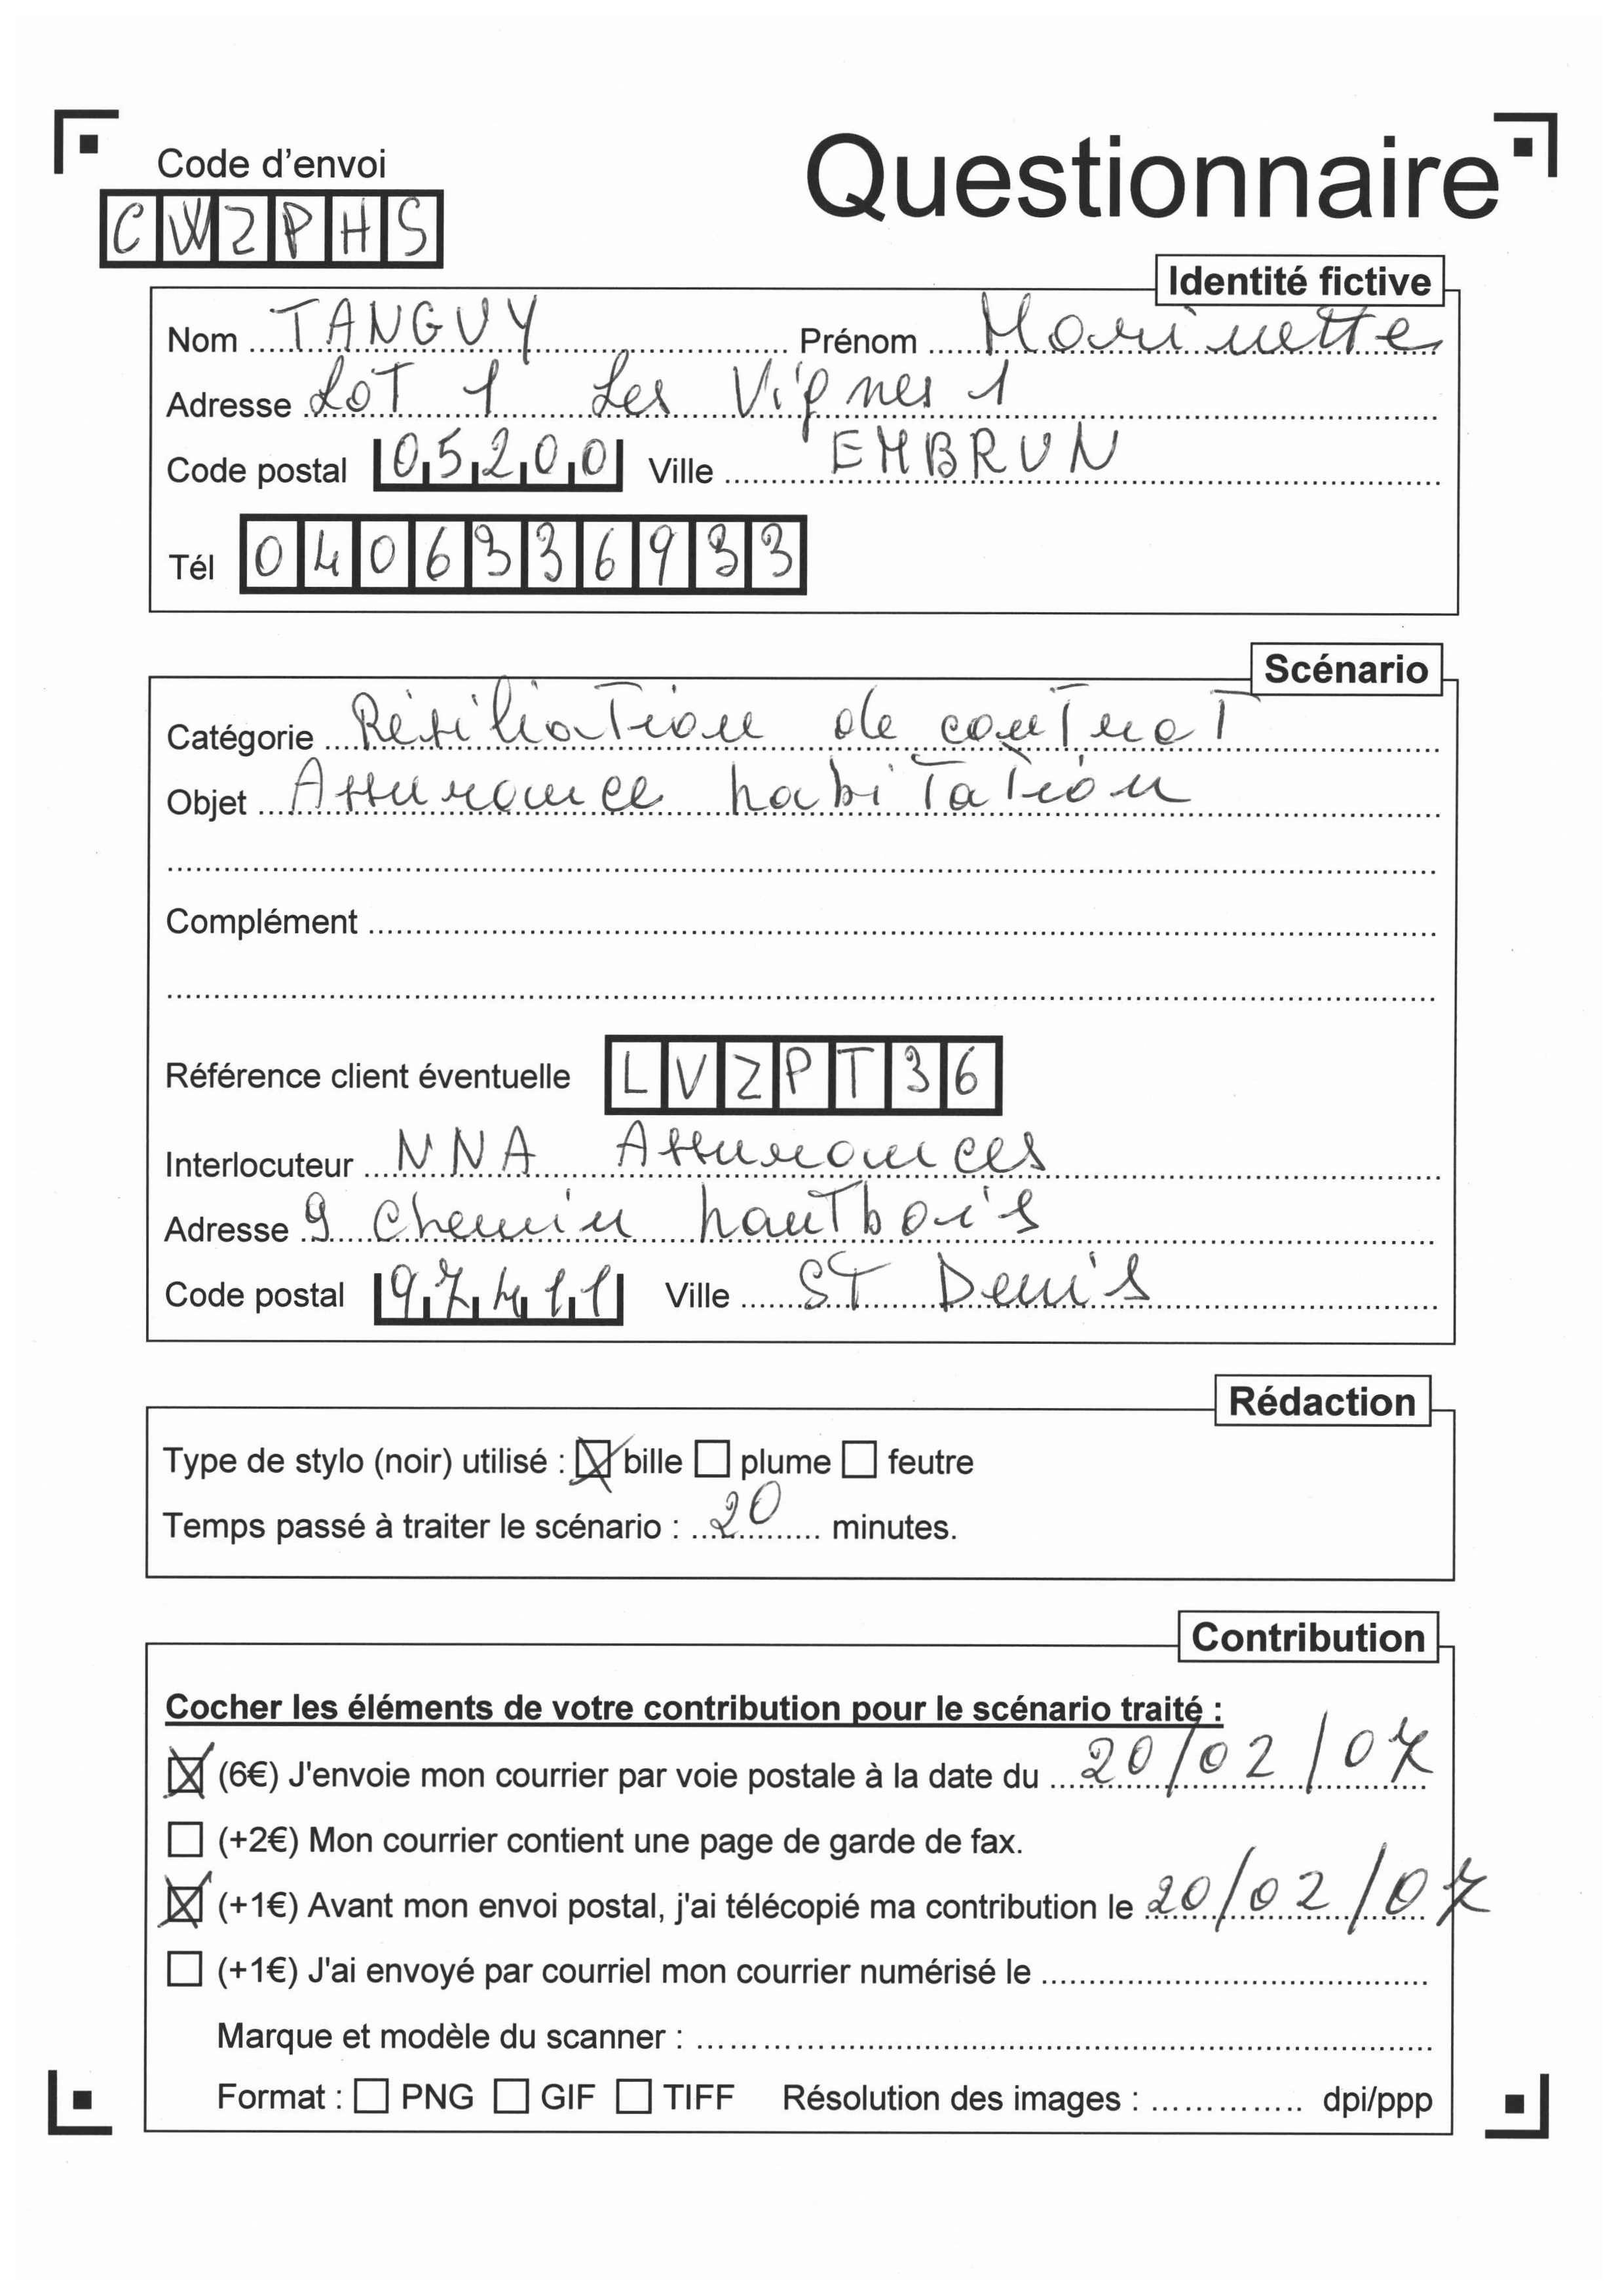 Code d'envoi
Questionnaire
CWZPHS
Identité fictive
Nom TANGUY Prénom Marinette
Adresse LOT 1 Les Vignes 1
Code postal 05200 Ville EMBRUN
Tél 0406336933
Scénario
Catégorie Résiliation de contrat
Objet Assurance habitation
Complément
Référence client éventuelle LVZPT36
Interlocuteur NNA Assurances
Adresse 9 chemin hautbois
Code postal 97411 Ville ST Denis
Rédaction
Type de stylo (noir) utilisé : ☒ bille ☐ plume ☐ feutre
Temps passé à traiter le scénario : 20 minutes.
Contribution
Cocher les éléments de votre contribution pour le scénario traité :
☒ (6€) J'envoie mon courrier par voie postale à la date du 20/02/07
☐ (+2€) Mon courrier contient une page de garde de fax.
☒ (+1€) Avant mon envoi postal, j'ai télécopié ma contribution le 20/02/07
☐ (+1€) J'ai envoyé par courriel mon courrier numérisé le
Marque et modèle du scanner :
Format : ☐ PNG ☐ GIF ☐ TIFF Résolution des images : dpi/ppp